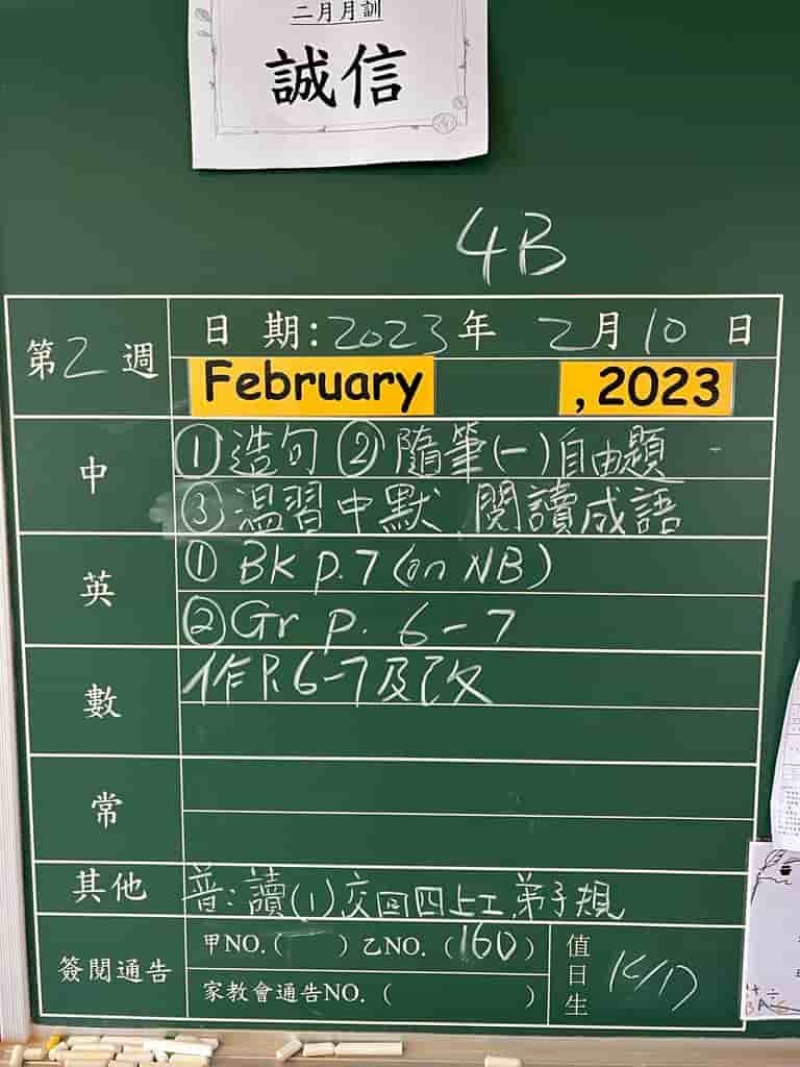 二月月訓
誠信
4B
第2週
日 期:2023年 2月10日
February ,2023
中
①造句 ②隨筆(一)自由題
③溫習中默、閱讀成語
英
① BK p.7 (on NB)
② Gr p. 6-7
數
作P.6-7及改
常
其他
普:讀(1)交回四上工,弟子規
簽閱通告
甲NO.( ) 乙NO. (160)
家教會通告NO. ( )
值日生